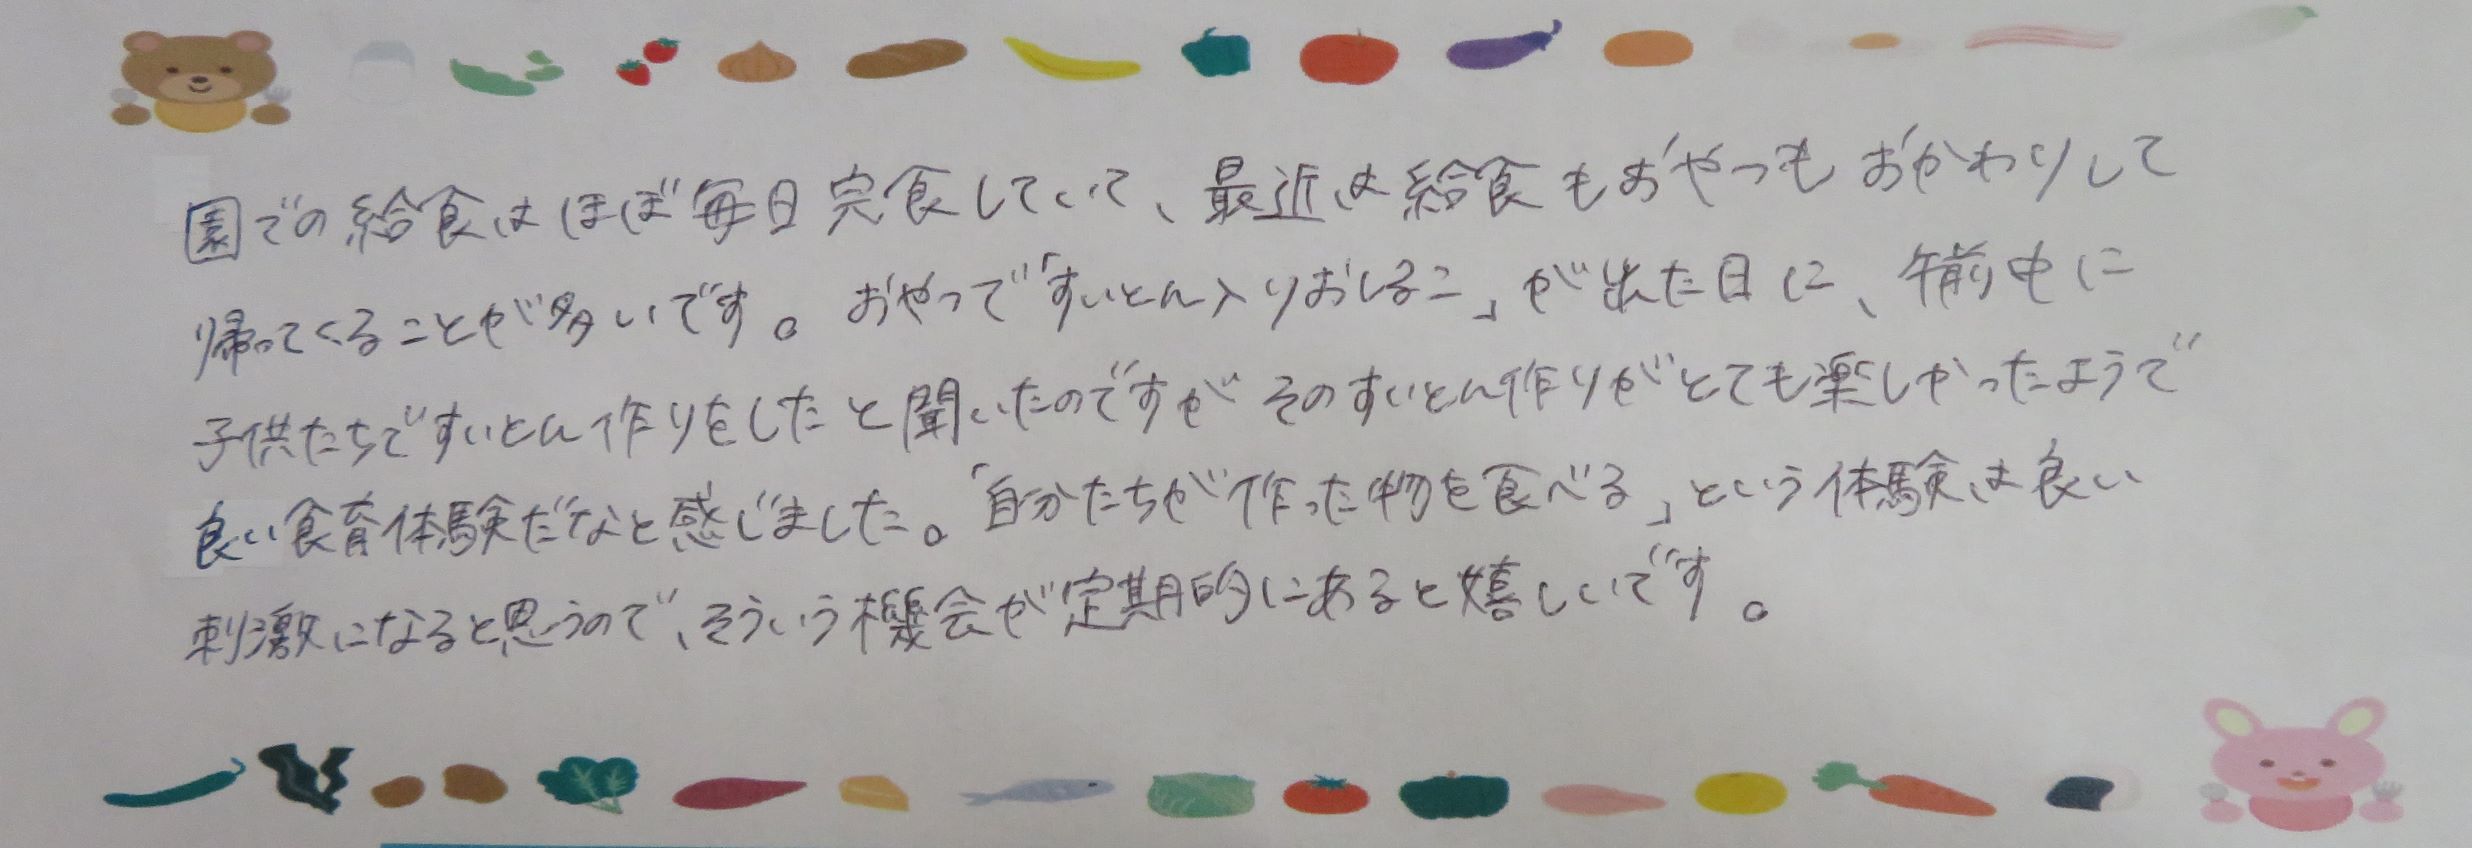 園での給食はほぼ毎日完食していて、最近は給食もおやつもおかわりして
帰ってくることが多いです。おやつで「すいとん入りおしるこ」が出た日に、午前中に
子供たちですいとん作りをしたと聞いたのですが そのすいとん作りがとても楽しかったようで
良い食育体験だなと感じました。「自分たちが作った物を食べる」という体験は良い
刺激になると思うので、そういう機会が定期的にあると嬉しいです。